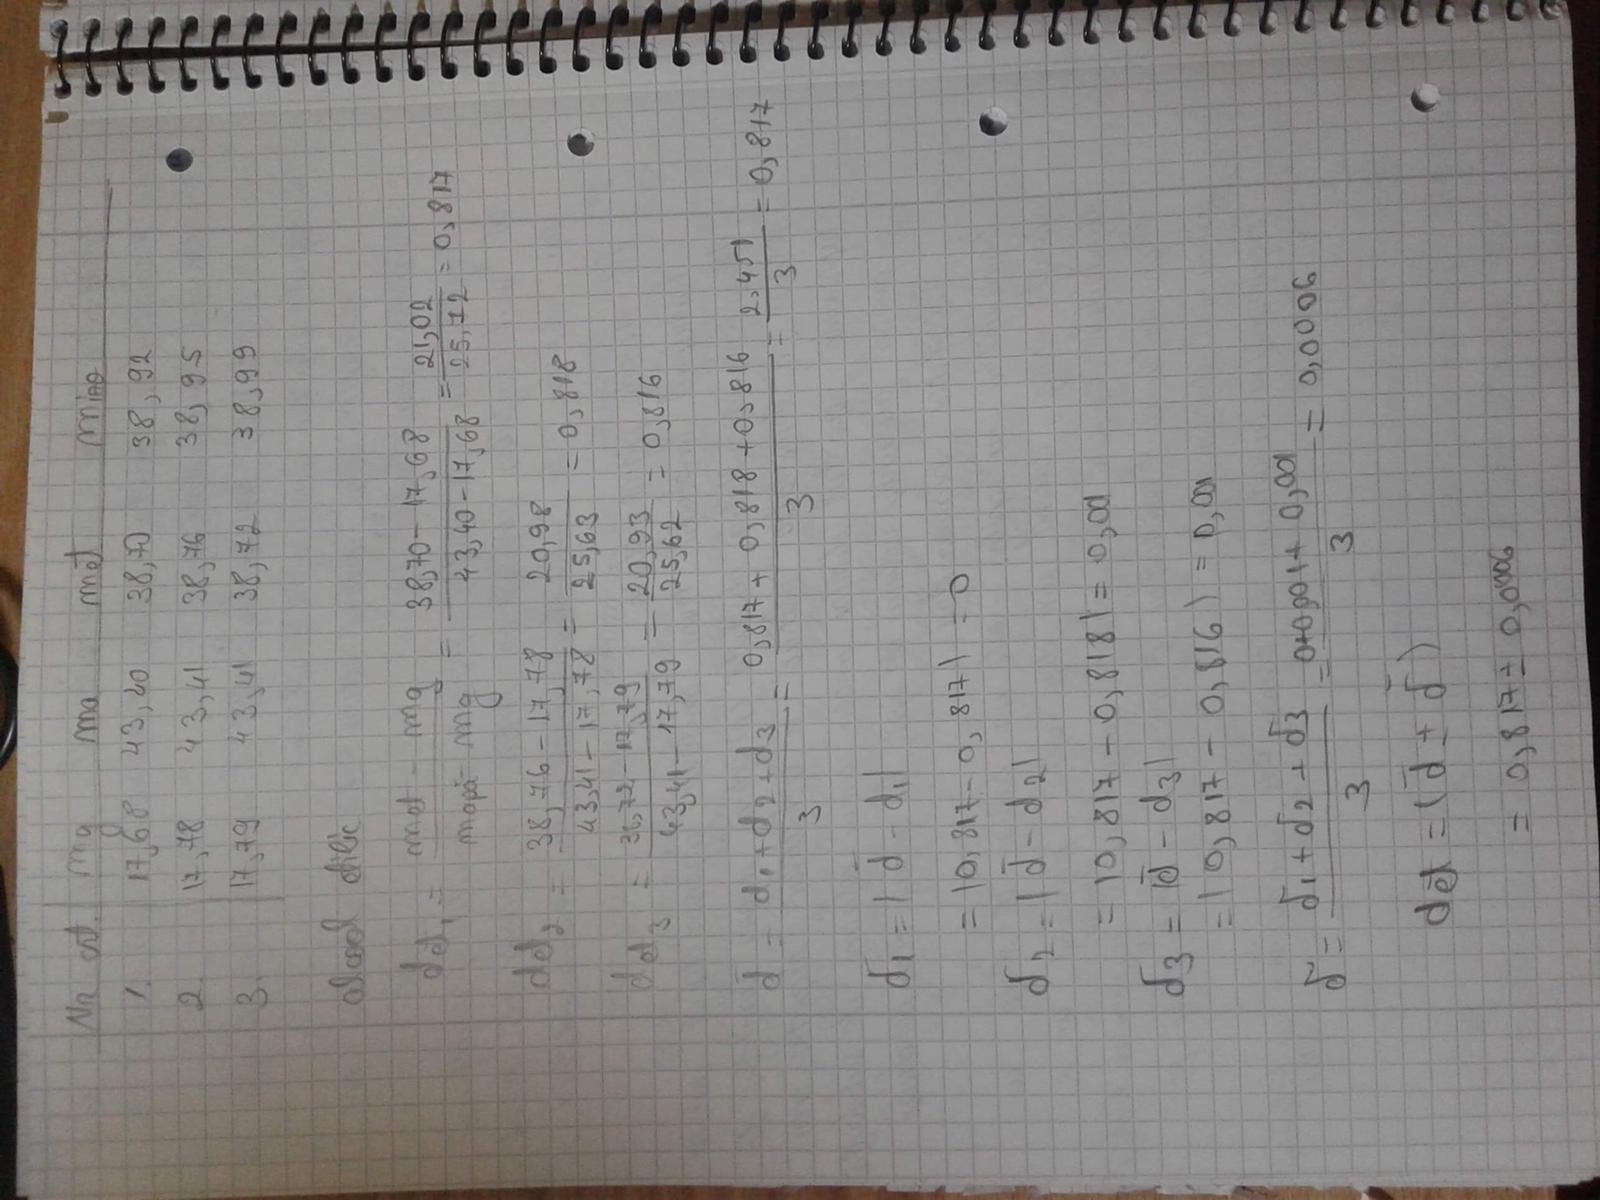 Nr crt. mg ma mat miAA
1. 17,68 43,40 38,70 38,92
2. 17,78 43,41 38,76 38,95
3. 17,79 43,41 38,72 38,99
alcool etilic
= mat - mg / mapă - mg = 38,70 - 17,68 / 43,40 - 17,68 = 21,02 / 25,72 = 0,817
= 38,76 - 17,78 / 43,41 - 17,78 = 20,98 / 25,63 = 0,818
= 38,72 - 17,79 / 43,41 - 17,79 = 20,93 / 25,62 = 0,816
d̄ = d1 + d2 + d3 / 3 = 0,817 + 0,818 + 0,816 / 3 = 2,451 / 3 = 0,817
δ1 = |d̄ - d1|
= |0,817 - 0,817| = 0
δ2 = |d̄ - d2|
= |0,817 - 0,818| = 0,001
δ3 = |d̄ - d3|
= |0,817 - 0,816) = 0,001
δ̄ = δ1 + δ2 + δ3 / 3 = 0+0,001+ 0,001 / 3 = 0,0006
= (d̄ ± δ̄)
= 0,817 ± 0,0006